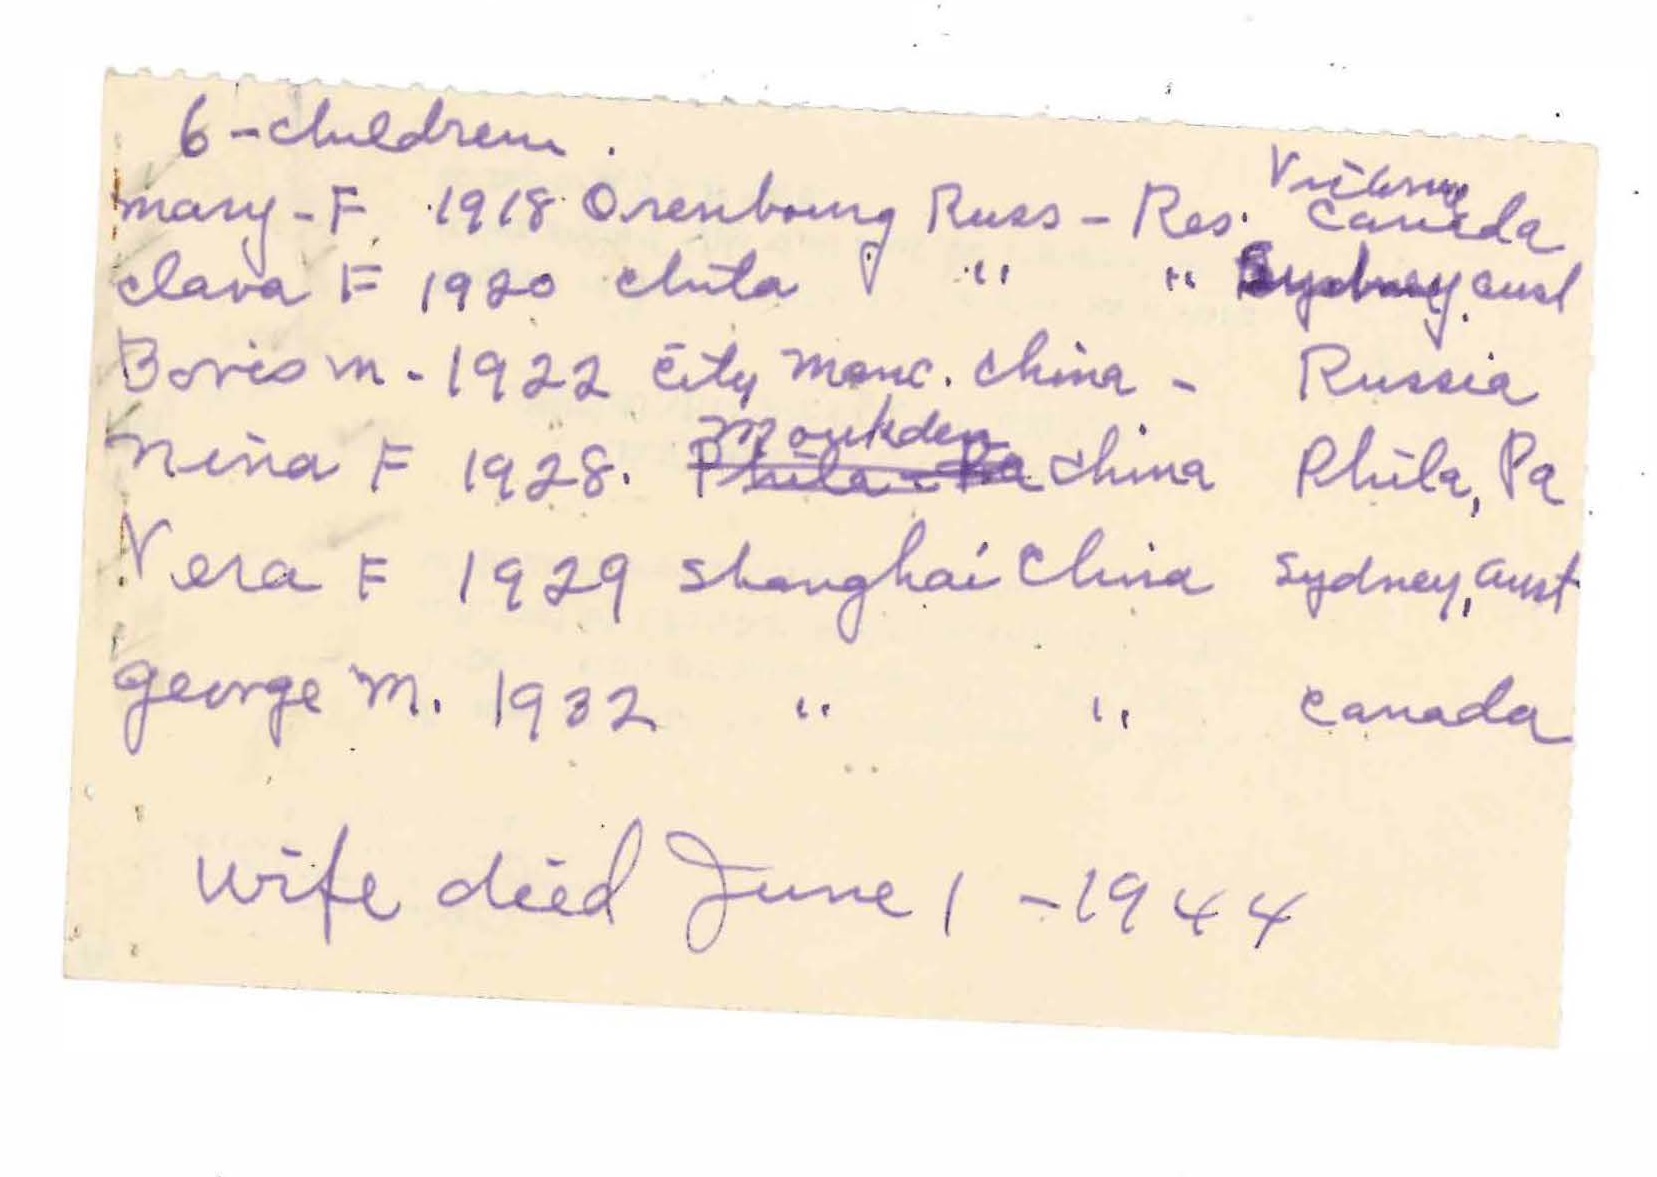 6 - children.
Mary - F. 1918 Orenbourg Russ - Res. Victoria Canada
Clara F 1920 Chita " " Sydney, Aust
Boris M. - 1922 City Manc. China - Russia
Nina F 1928. Phila - Pa Moukden China Phila, Pa
Vera F 1929 Shanghai China Sydney, Aust
George M. 1932 " " Canada
Wife died June 1 - 1944